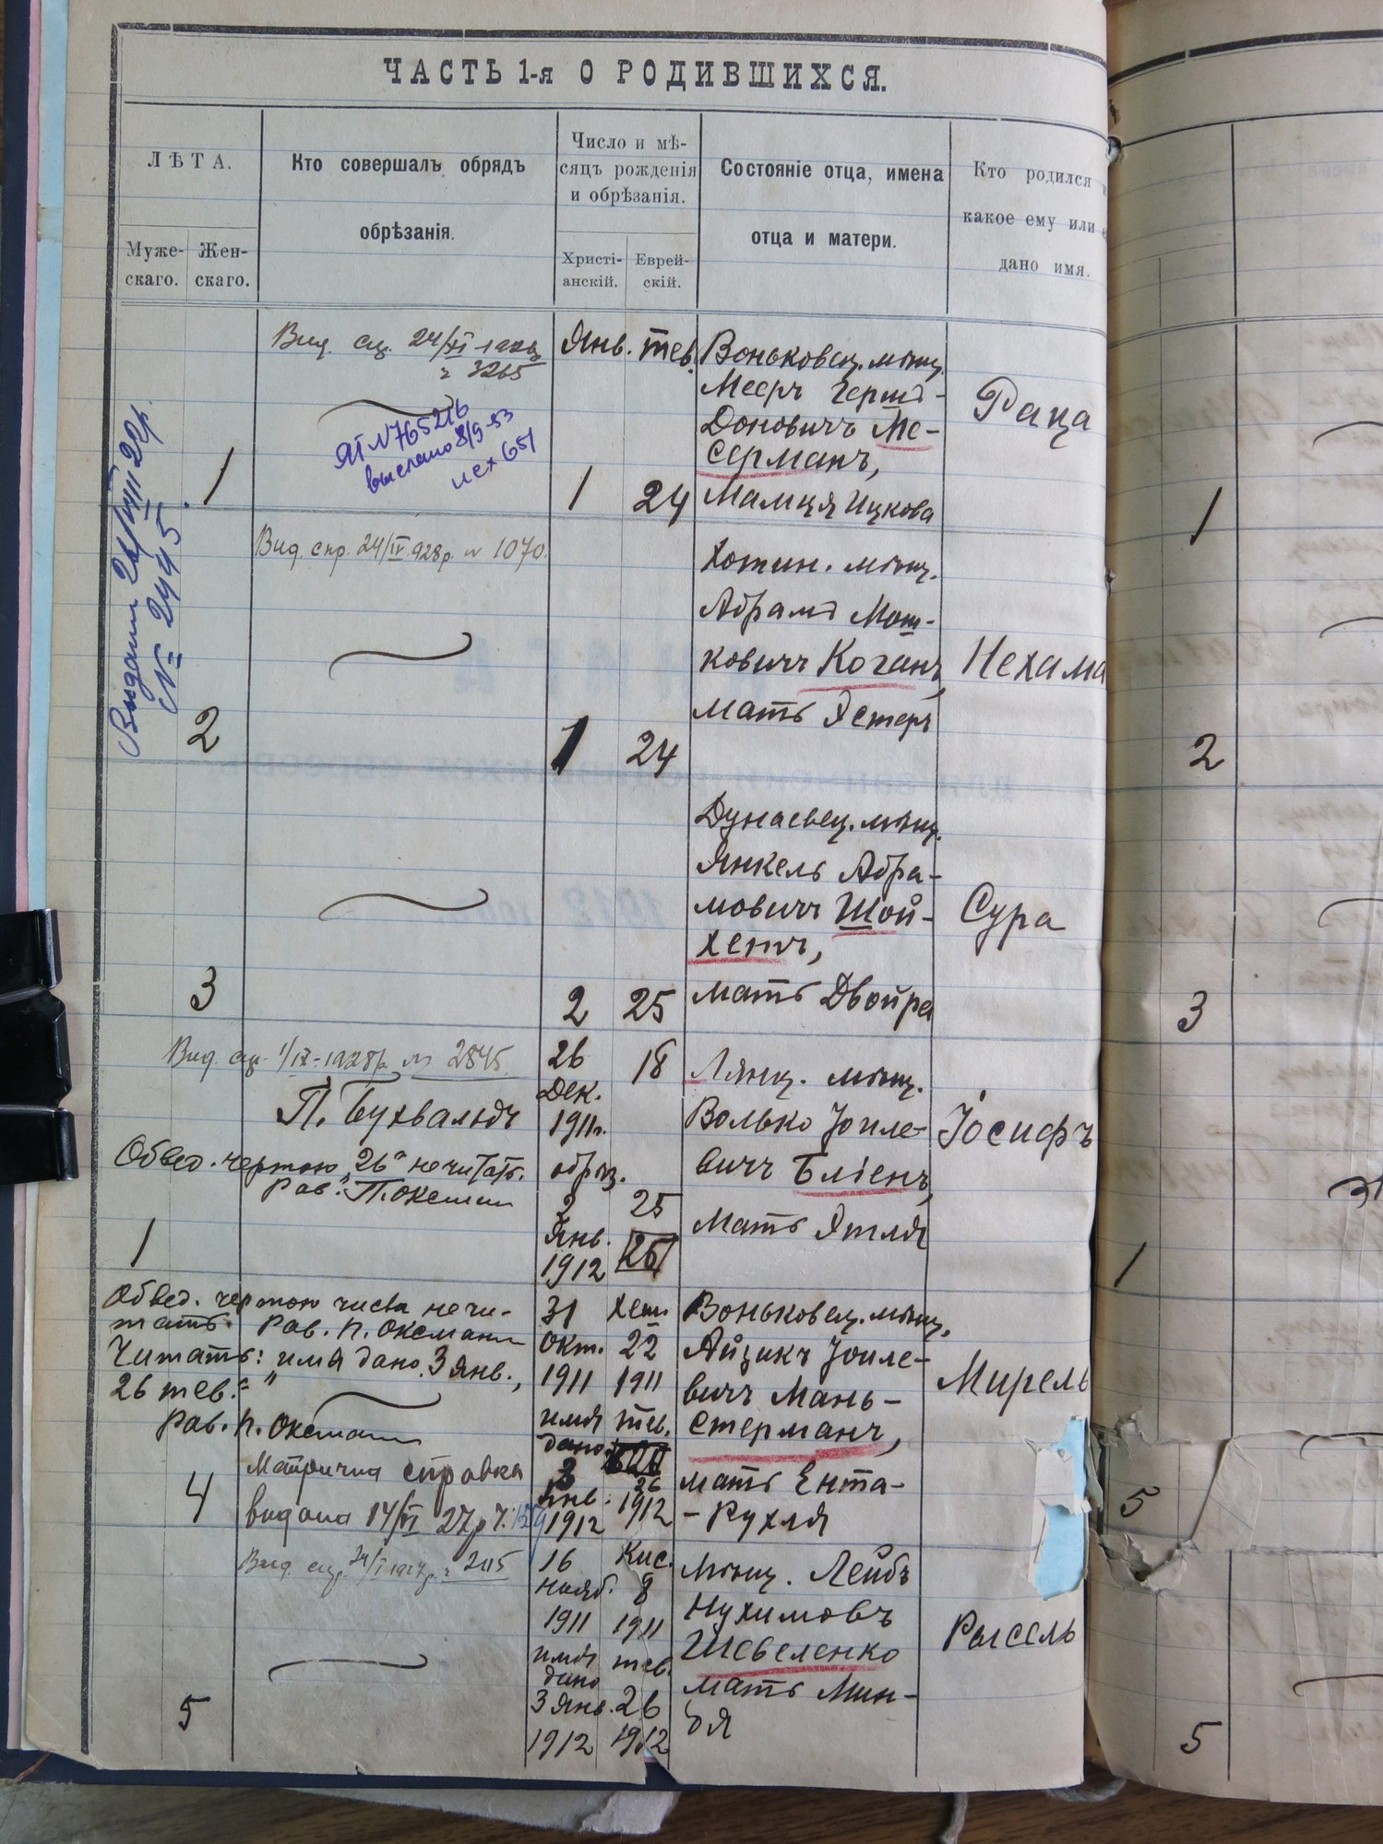 ЧАСТЬ 1-я О РОДИВШИХСЯ.
ЛѢТА.
Муже-
скаго.
Жен-
скаго.
Кто совершалъ обрядъ
обрѣзанія.
Число и мѣ-
сяцъ рожденія
и обрѣзанія.
Христі-
анскій.
Еврей-
скій.
Состояніе отца, имена
отца и матери.
Кто родился
какое ему или
дано имя.
Вид. 24/VI
3265
ЯТ №765216
выслано 8/9-53
исх 651
Выдали
№ 2495
1
Янв. тев.
1 24
Воньковец. мѣщ.
Мееръ Герш-
Доновичъ Ме-
серманъ,
Мамця Ицкова
Раца
Вид. спр. 24/IV 928р. № 1070.
2
1 24
Хотин. мѣщ.
Абрамъ Мош-
ковичъ Коганъ,
мать Эстеръ
Нехама
3
2 25
Дунаевец. мѣщ.
Янкель Абра-
мовичъ Шой-
хетъ,
мать Двойра
Сура
Вид. 1/IX-1928р. № 2845.
П. Бухвальдъ
Обвед. чертою „26“ не читать.
Рав. П. Оксман
1
26
Дек.
1911г.
обрѣз.
2
Янв.
1912
18
25
26
Лянц. мѣщ.
Волько Іоиле-
вичъ Бліенъ,
мать Этля
Іосифъ
Обвед. чертою числа не чи-
тать. Рав. П. Оксман
Читать: имя дано 3 янв.,
26 тев.“
Рав. П. Оксман
Матрична справка
видана 14/VI 27р
4
31
окт.
1911
имя
дано
3
янв.
1912
Хеш.
22
1911
тев.
26
1912
Воньковец. мѣщ.
Айзикъ Іоиле-
вичъ Мань-
стерманъ,
мать Ента-
-Рухля
Мирель
Вид. 2115
5
16
нояб.
1911
имя
дано
3 янв.
1912
Кис.
8
1911
тев.
26
1912
Мѣщ. Лейбъ
Нухимовъ
Шевеленко
мать Мин-
дя
Рыссель
1
2
3
1
5
5